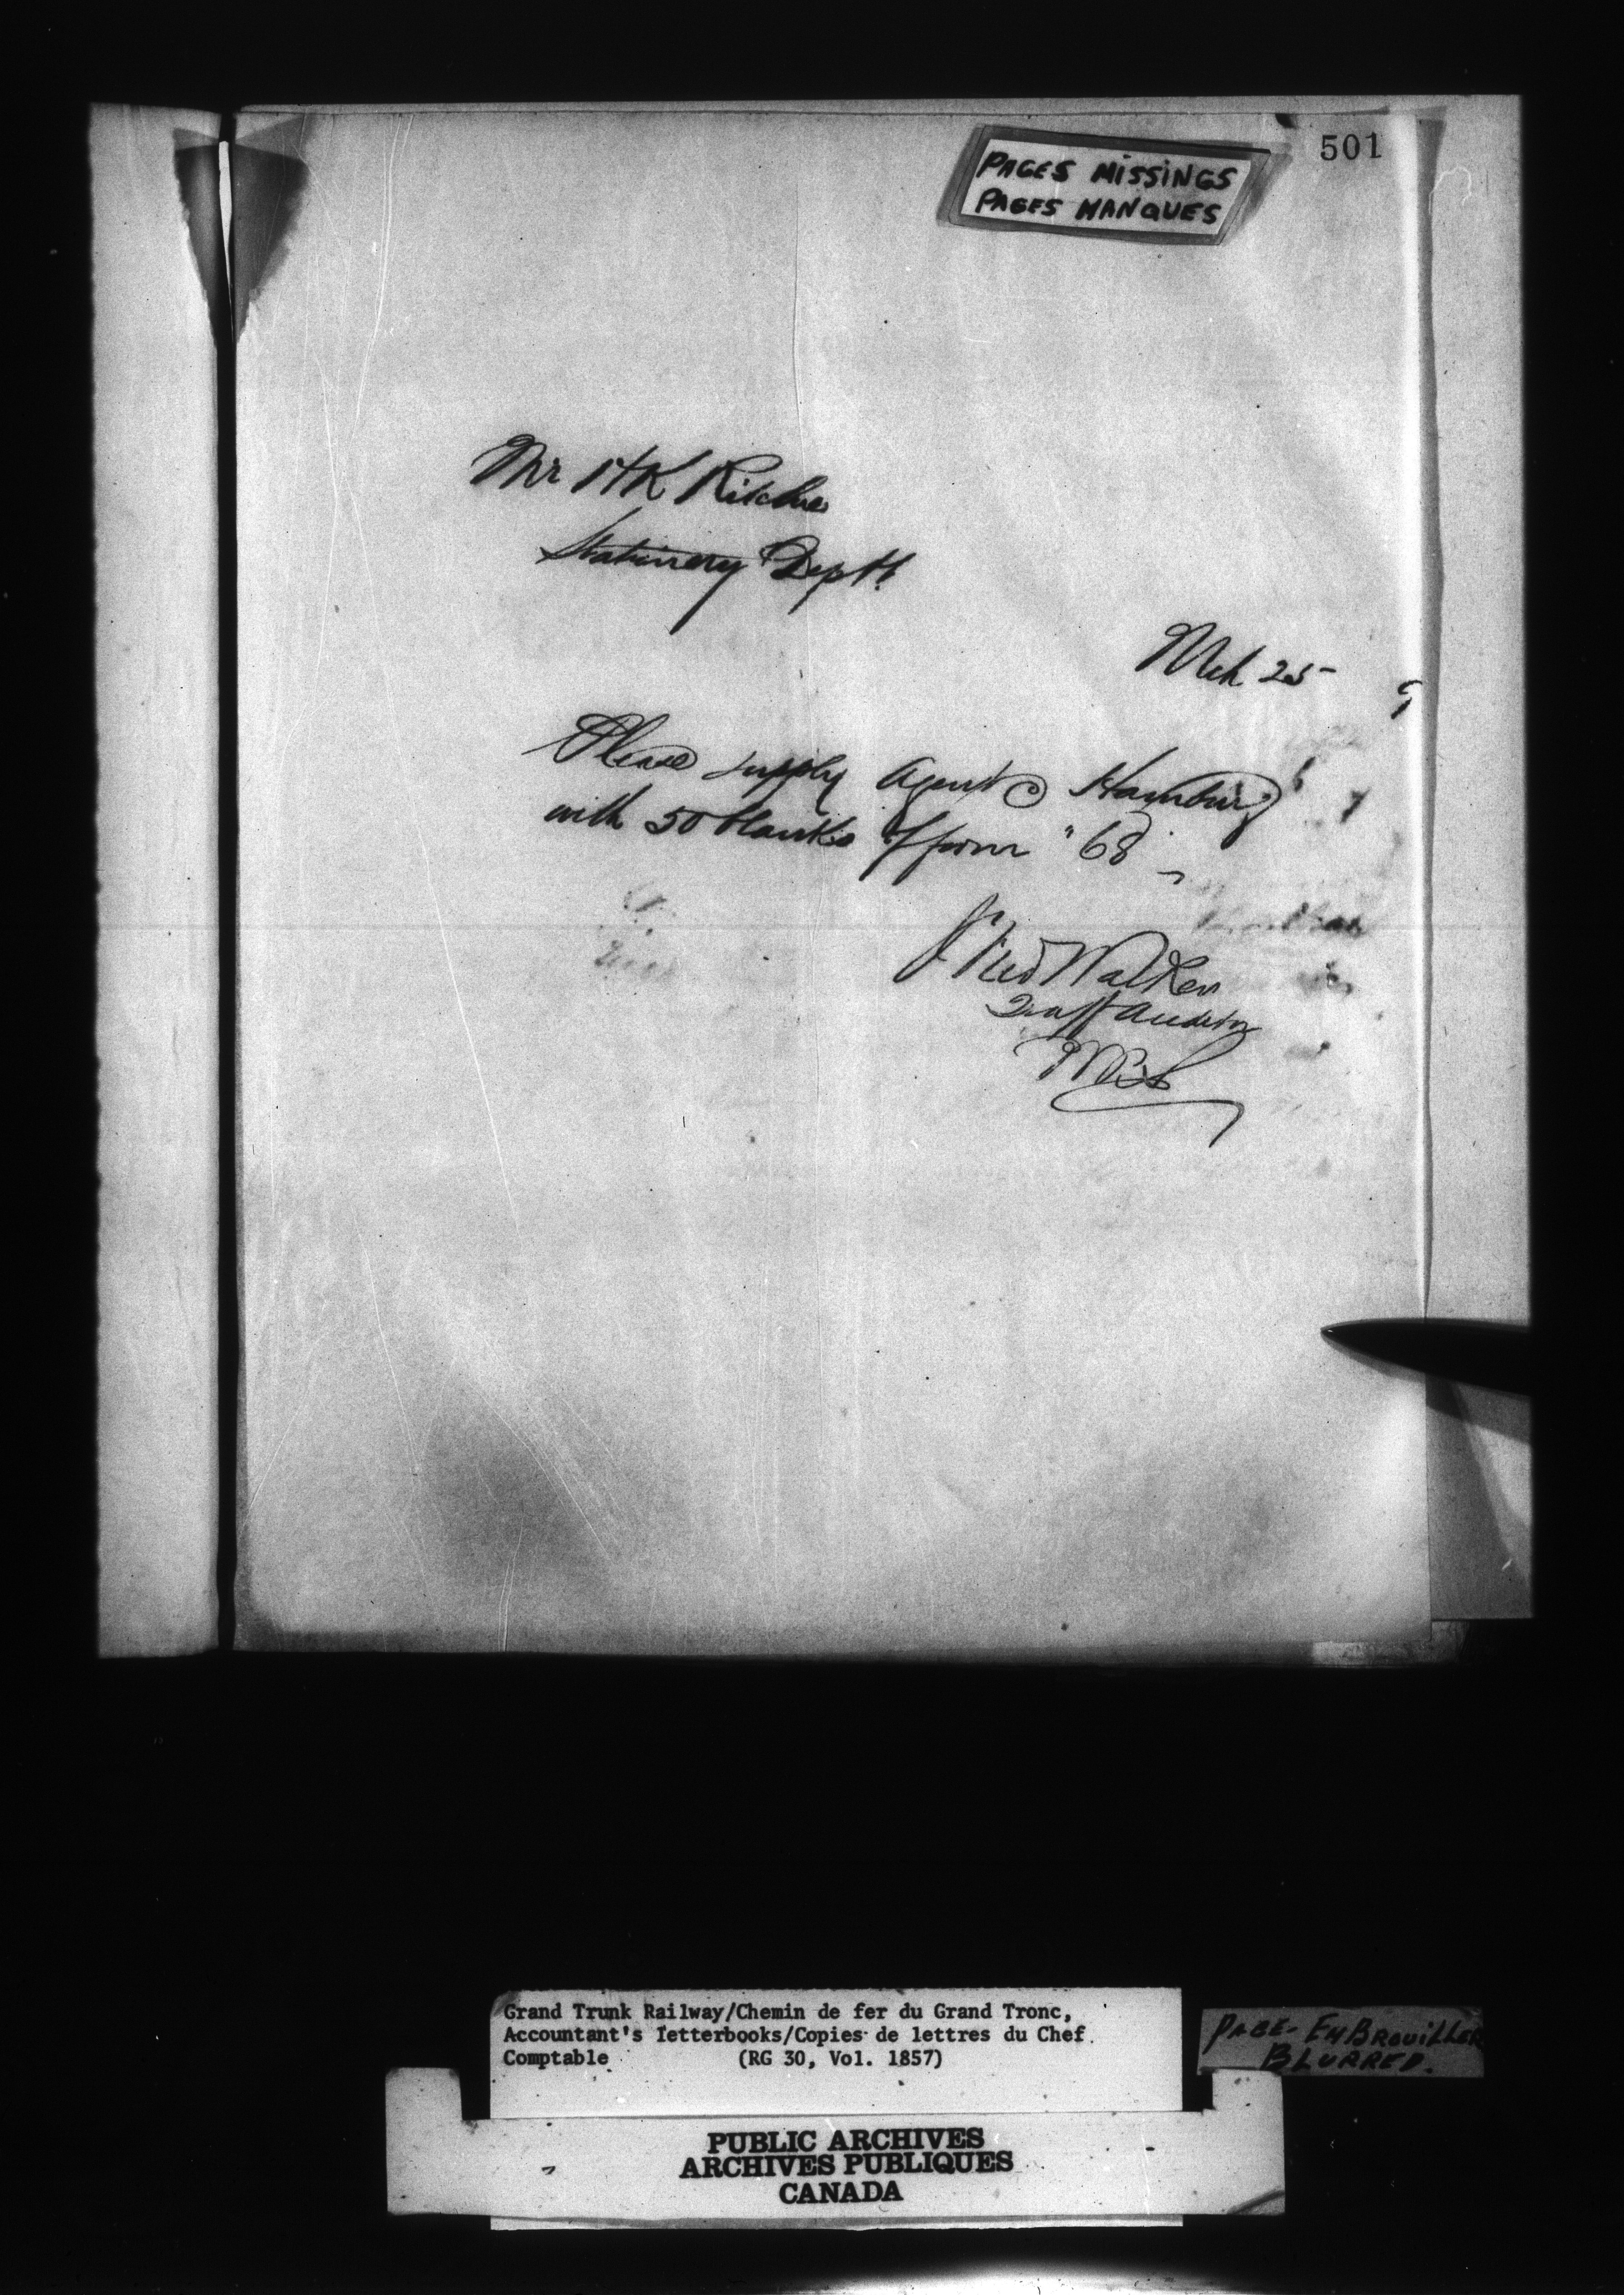 501
PAGES MISSINGS
PAGES MANQUES
Mr HK Ritchie
Stationery Dept
Mch 25
Please supply Agent @ Hamburg
with 50 blanks of form "68"
Walker
Traff Auditor
Grand Trunk Railway/Chemin de fer du Grand Tronc,
Accountant's letterbooks/Copies de lettres du Chef
Comptable (RG 30, Vol. 1857)
PAGE- EMBROUILLER
BLURRED.
PUBLIC ARCHIVES
ARCHIVES PUBLIQUES
CANADA